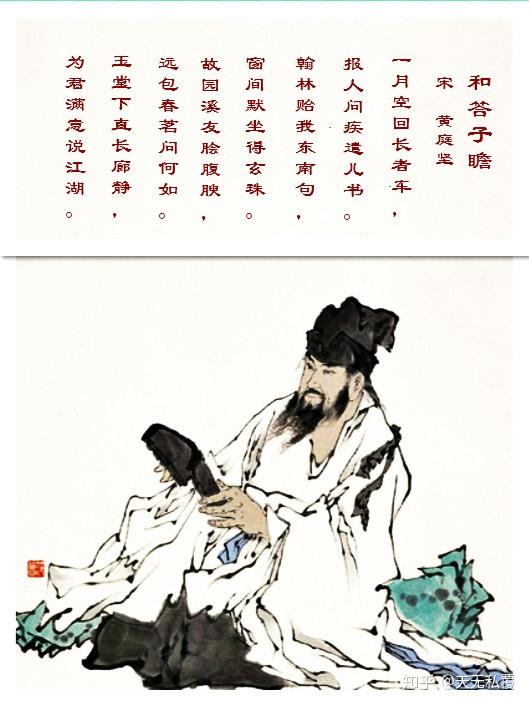 和答子瞻
宋 黄庭坚
一月空回长者车，
报人问疾遣儿书。
翰林贻我东南句，
窗间默坐得玄珠。
故园溪友脍腹腴，
远包春茗问何如。
玉堂下直长廊静，
为君满意说江湖。
知乎 @天无私覆